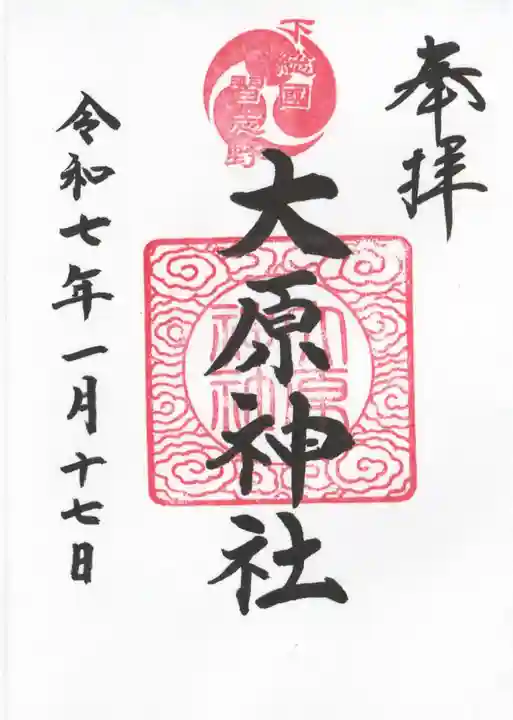 奉拝
下総國
習志野
大原神社
大原
神社
令和七年一月十七日